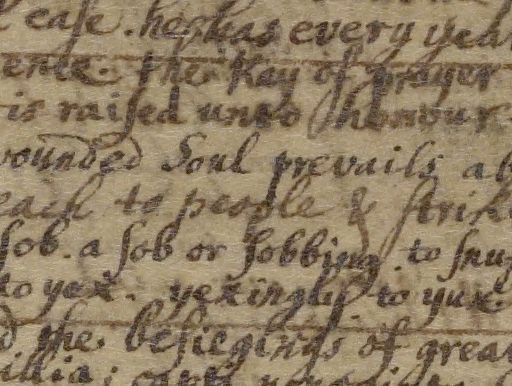 ease. he has every yea
ence. the Kay of prayer
is raised unto honour
wounded Soul prevails ab
each to people & strik
sob. a sob or sobbing. to snu
to yex. yexingly. to yux.
d the. besiegings of grea